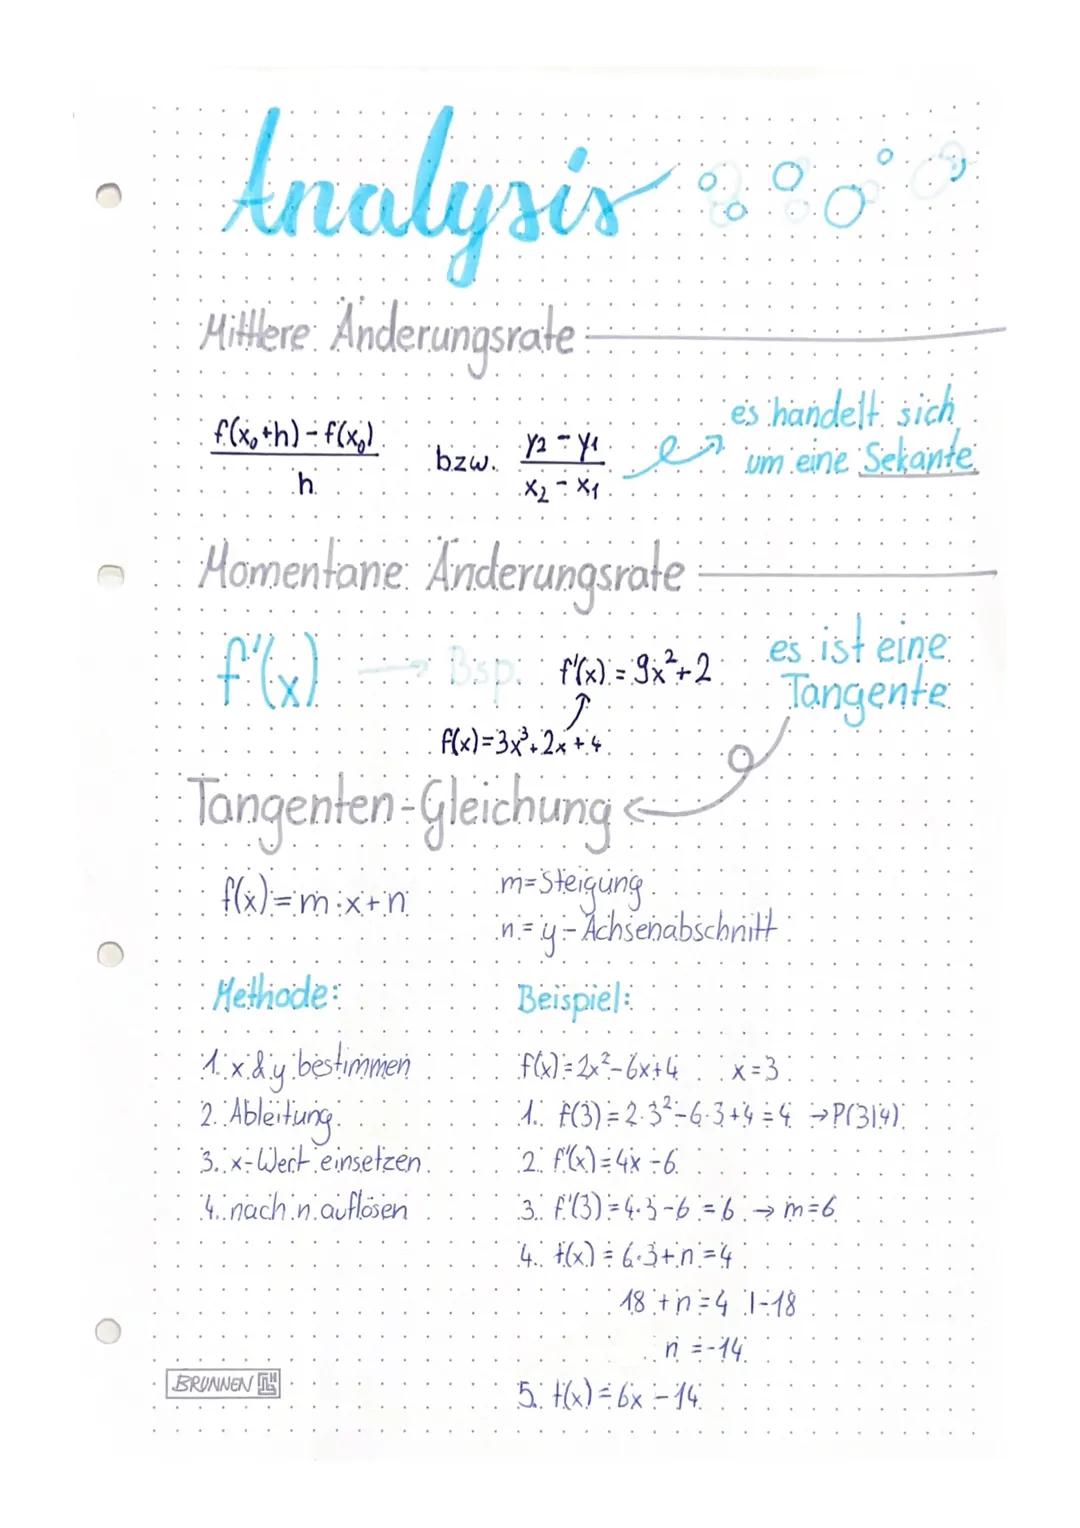 Analysis
Mittlere Änderungsrate
f(x₀+h) - f(x₀) / h bzw. y₂ - y₁ / x₂ - x₁
es handelt sich
um eine Sekante
Momentane Änderungsrate
f'(x) → Bsp. f'(x) = 9x²+2
f(x)=3x³+2x+4
es ist eine
Tangente
Tangenten-Gleichung
f(x)=m·x+n
m=Steigung
n=y-Achsenabschnitt
Methode:
1. x & y bestimmen
2. Ableitung
3. x-Wert einsetzen
4. nach n auflösen
Beispiel:
f(x)=2x²-6x+4 x=3
1. f(3)=2·3²-6·3+4=4 →P(3|4)
2. f'(x)=4x-6
3. f'(3)=4·3-6=6 → m=6
4. t(x)=6·3+n=4
18+n=4 |-18
n=-14
5. t(x)=6x-14
BRUNNEN